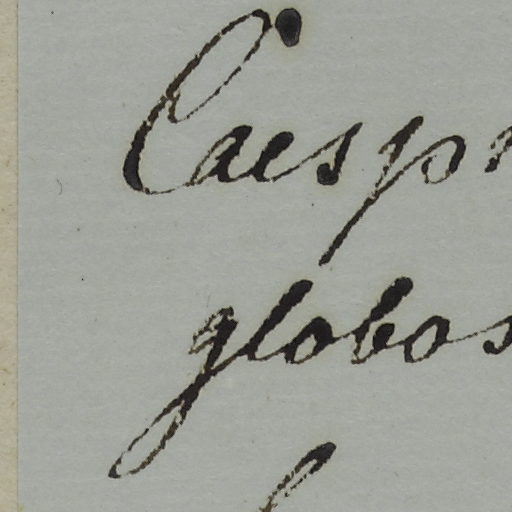 Caesp
globos